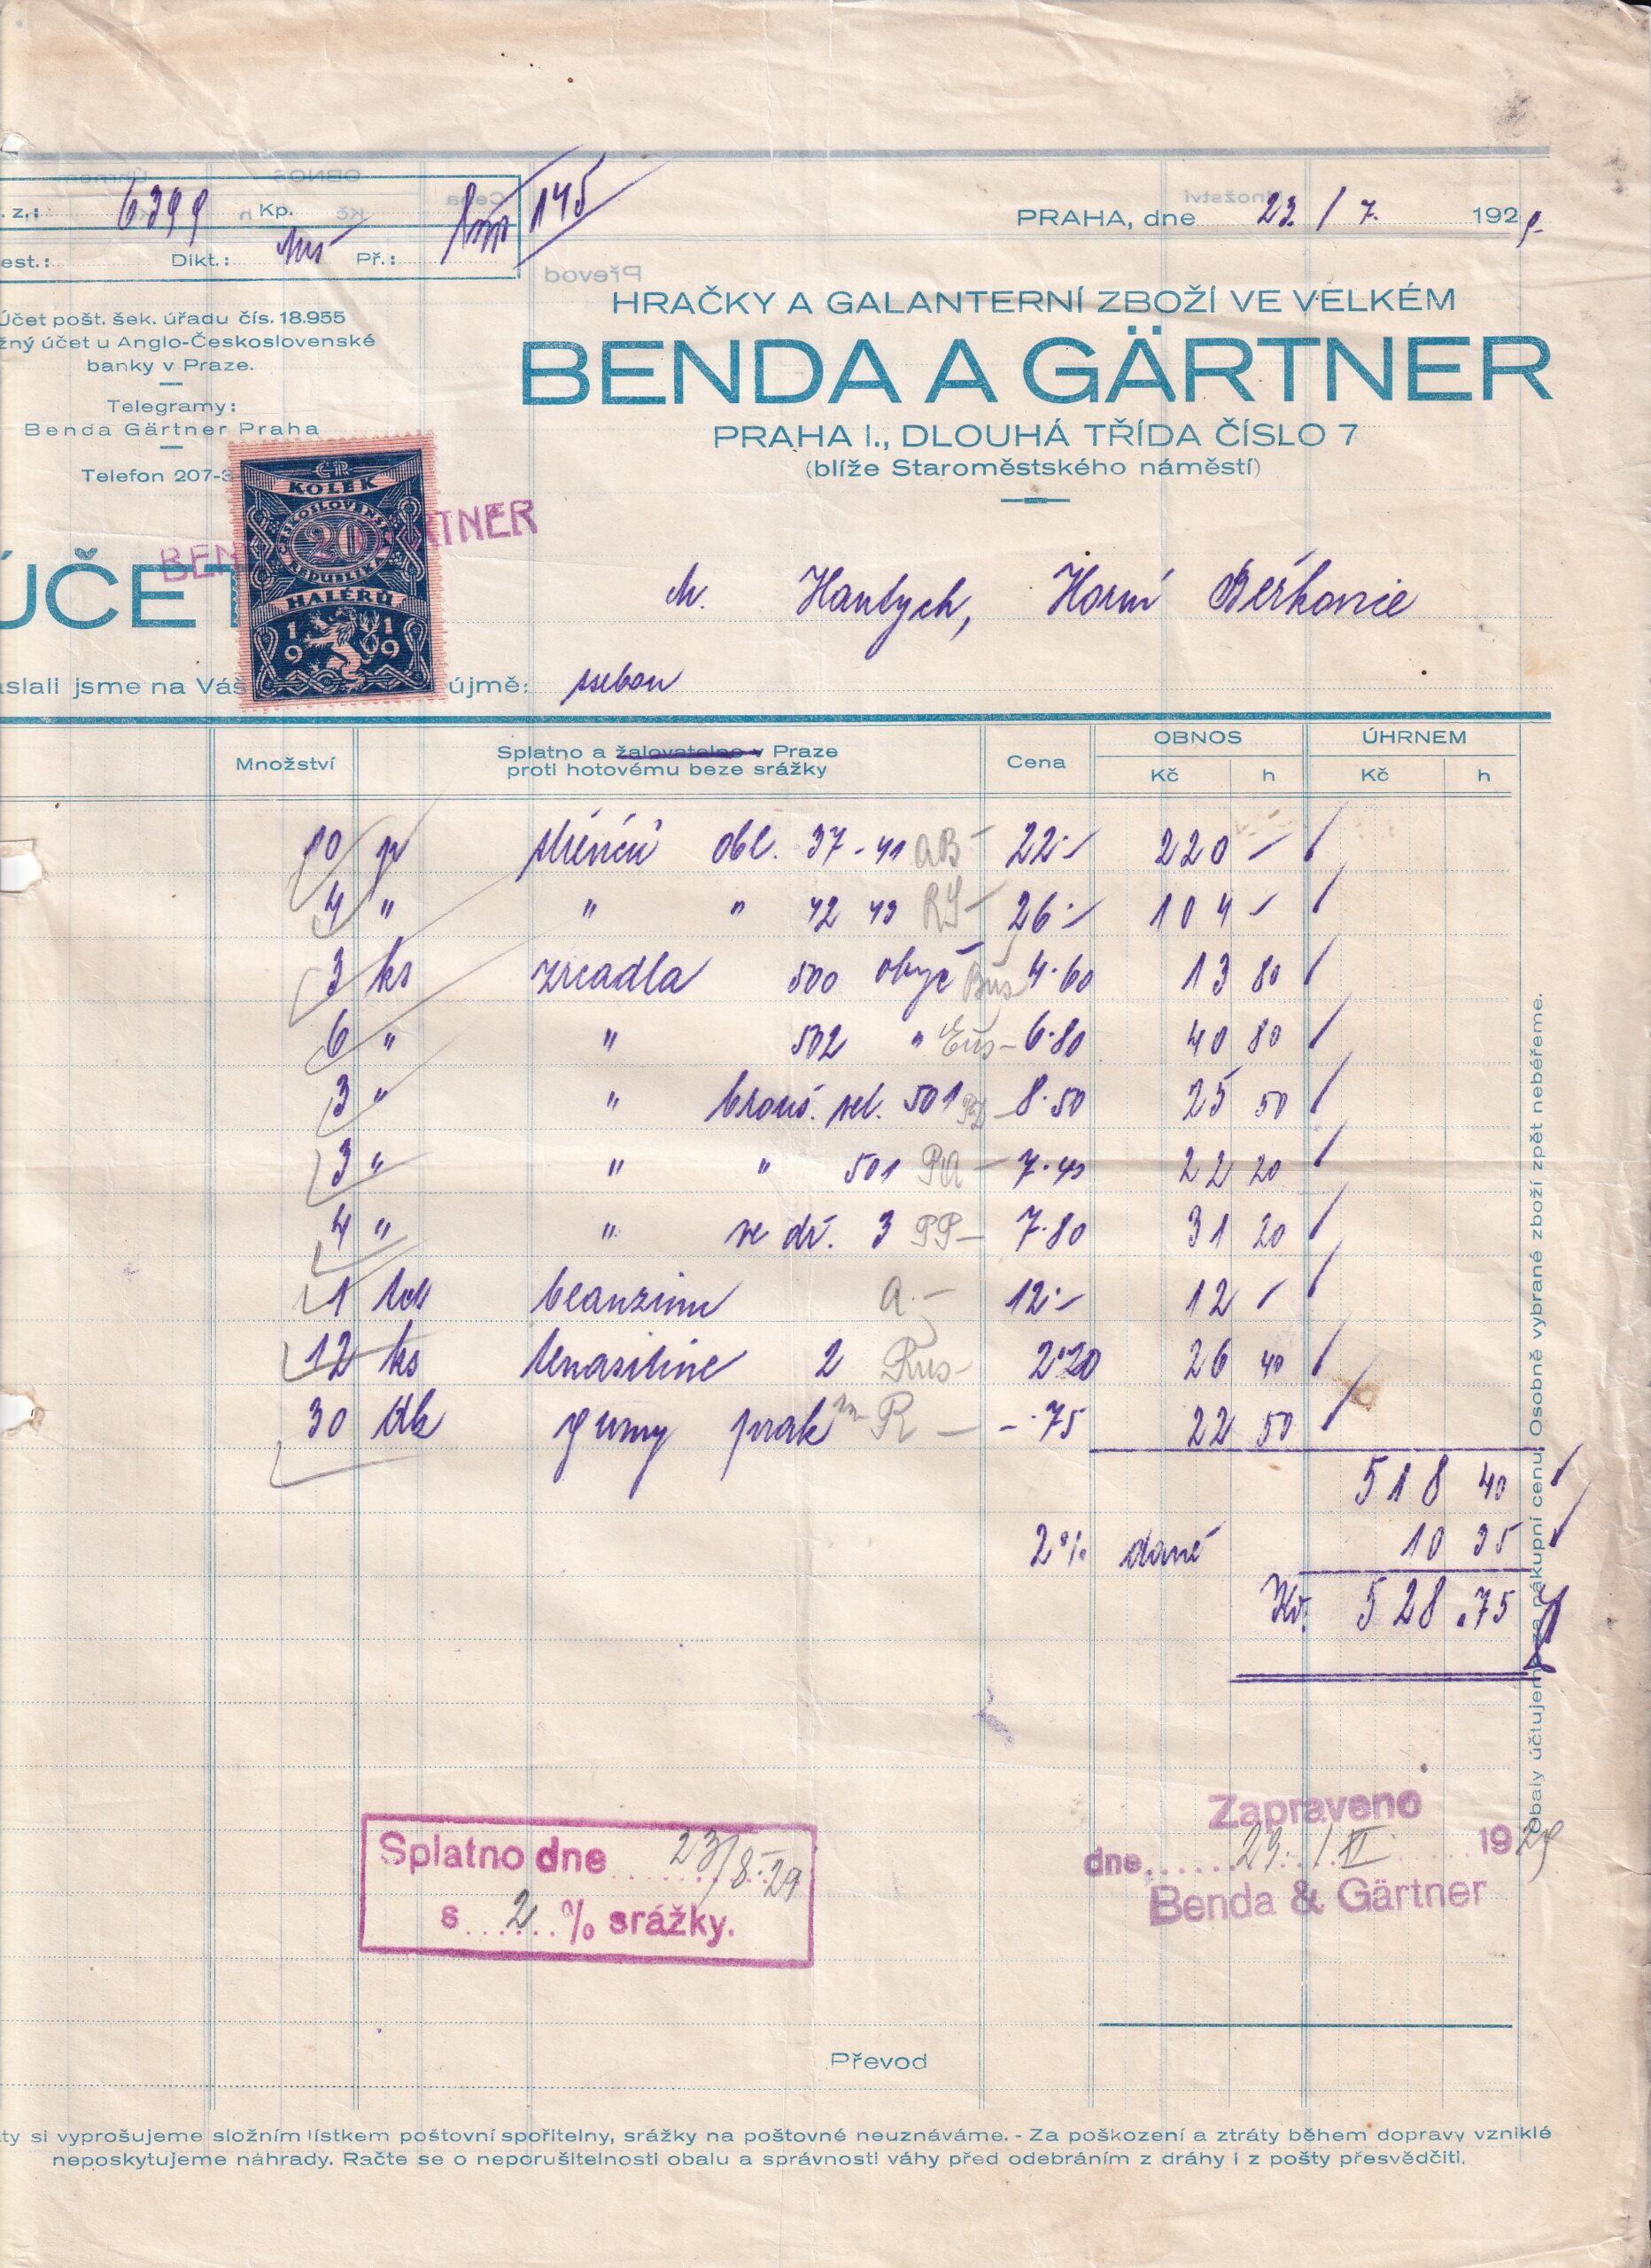 . z.: 6399 Kp. 145
est.: Dikt.: Př.:
PRAHA, dne 23/7. 1929.
Účet pošt. šek. úřadu čís. 18.955
žný účet u Anglo-Československé
banky v Praze.
Telegramy:
Benda Gärtner Praha
Telefon 207-3
HRAČKY A GALANTERNÍ ZBOŽÍ VE VELKÉM
BENDA A GÄRTNER
PRAHA I., DLOUHÁ TŘÍDA ČÍSLO 7
(blíže Staroměstského náměstí)
ČR
KOLEK
ČESKOSLOVENSKÁ
20
REPUBLIKA
HALÉŘŮ
1919
BEN RTNER
ÚČET
M. Hantych, Horní Beřkovice
aslali jsme na Váš újmě: sebou
Množství Splatno a žalovatelno v Praze proti hotovému beze srážky Cena OBNOS Kč h ÚHRNEM Kč h
10 p střevíců obl. 37-41 AB- 22·- 220 -
4 " " " 42 43 RY- 26·- 104 -
3 ks zrcadla 500 obyč Bus 4·60 13 80
6 " " 502 " Eus- 6·80 40 80
3 " " brouš. vel. 501 8·50 25 50
3 " " " 501 PA- 7·40 22 20
4 " " ve dř. 3 PP- 7·80 31 20
1 tct A.- 12·- 12 -
12 ks 2 Rus- 2·20 26 40
30 dk gumy prak R - -·75 22 50
518 40
2% daně 10 35
Kč. 528.75
Splatno dne 23/8·29
s 2 % srážky.
Zapraveno
dne 1929
Benda & Gärtner
Převod
Obaly účtujeme za nákupní cenu. Osobně vybrané zboží zpět nebéřeme.
ty si vyprošujeme složním lístkem poštovní spořitelny, srážky na poštovné neuznáváme. - Za poškození a ztráty během dopravy vzniklé
neposkytujeme náhrady. Račte se o neporušitelnosti obalu a správnosti váhy před odebráním z dráhy i z pošty přesvědčiti.